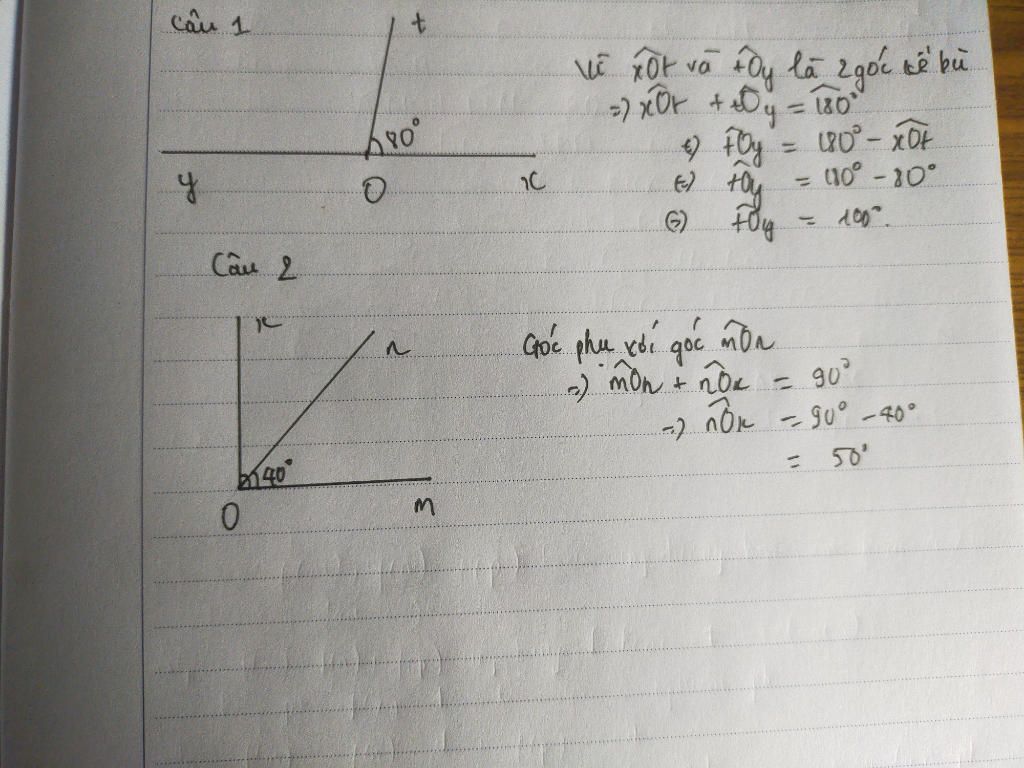 Câu 1
t
80°
y
O
x
Vì xOt và tOy là 2 góc kề bù
=> xOt + tOy = 180°
<=> tOy = 180° - xOt
<=> tOy = 180° - 80°
<=> tOy = 100°.
Câu 2
x
n
40°
O
m
Góc phụ với góc mOn
=> mOn + nOx = 90°
=> nOx = 90° - 40°
= 50°